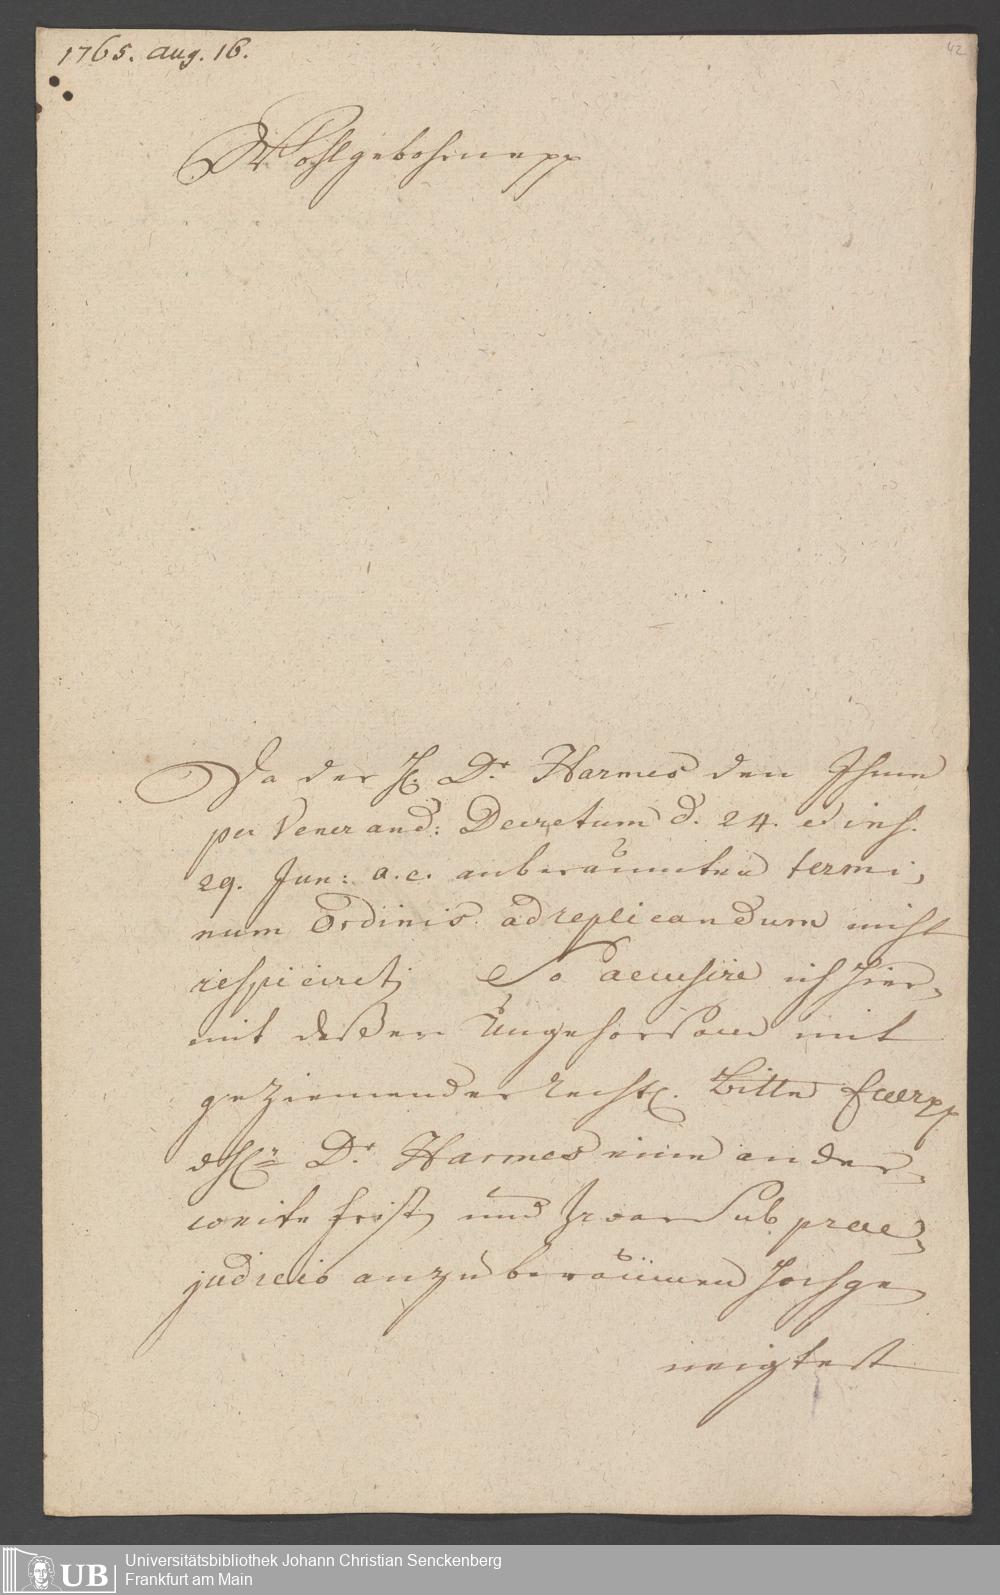 1765. aug. 16.
42
Wohlgebohrne pp
Da der H. Dr. Harmes den Ihme
per Venerand: Decretum d. 24. et ins.
29. Jun: a. c. anberaumten termi,
num Ordinis ad replicandum nicht
respiciret, So accusire ich hier,
mit deßen Ungehorsam mit
geziemender rechtl. Bitte Euer pp
Dr. Harmes eine ander,
weite frist, und zwar Sub prae,
judicio anzuberaumen hochge
neigtest
UB
Universitätsbibliothek Johann Christian Senckenberg
Frankfurt am Main